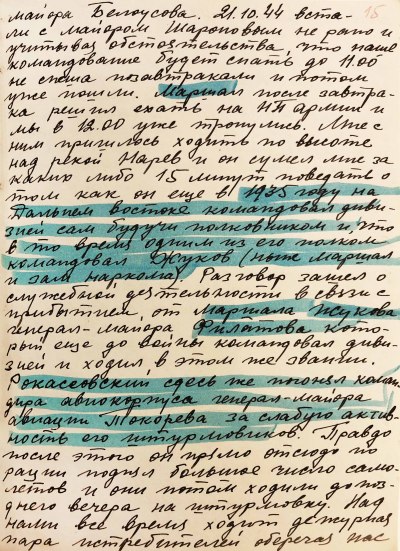 майора Белоусова. 21.10.44 вста- 15
ли с майором Шароновым не рано и
учитывая обстоятельства, что наше
командование будет спать до 11.00
не спеша позавтракали и потом
уже пошли. Маршал после завтра-
ка решил ехать на НП армии и
мы в 12.00 уже тронулись. Мне с
ним пришлось ходить по высоте
над рекой Нарев и он сумел мне за
каких либо 15 минут поведать о
том как он еще в 1935 году на
Дальнем востоке командовал диви-
зией сам будучи полковником и, что
в то время одним из его полком
командовал Жуков (ныне маршал
и зам наркома). Разговор зашел о
служебной деятельности в связи с
прибытием, от маршала Жукова
генерал-майора Филатова кото-
рый еще до войны командовал диви-
зией и ходил в этом же звании.
Рокасеовский сдесь же погонял коман-
дира авиокорпуса генерал-майора
авиации Токорева за слабую актив-
ность его штурмовиков. Правдо
после этого он прямо отсюдо по
рации поднял большое число само-
летов и они потом ходили до поз-
днего вечера на штурмовку. Над
нами все время ходит дежурная
пара истребителей оберегая нас